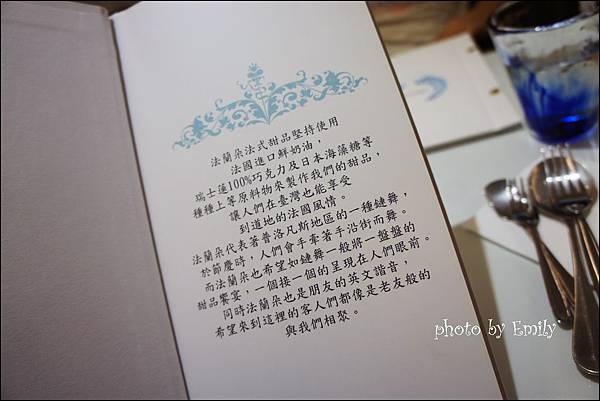 法蘭朵法式甜品堅持使用
法國進口鮮奶油，
瑞士蓮100%巧克力及日本海藻糖等
種種上等原料物來製作我們的甜品，
讓人們在臺灣也能享受
到道地的法國風情。
法蘭朵代表著普洛凡斯地區的一種鏈舞，
於節慶時，人們會手牽著手沿街而舞。
而法蘭朵也希望如鏈舞一般將一盤盤的
甜品饗宴，一個接一個的呈現在人們眼前。
同時法蘭朵也是朋友的英文諧音，
希望來到這裡的客人們都像是老友般的
與我們相聚。
photo by Emily